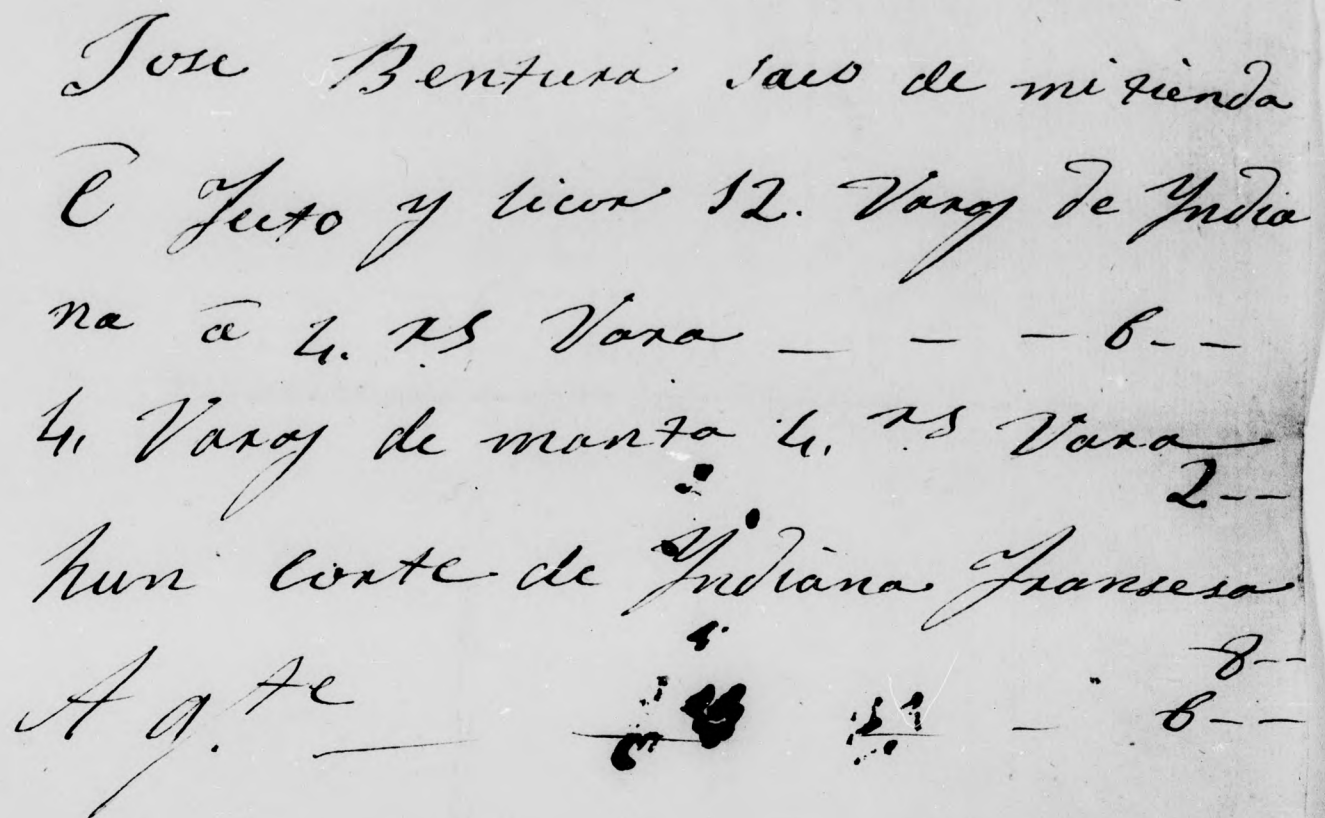 Jose Bentura saco de mi tienda
E Fecto y licor 12. Varas de Yndia
na a 4. rs Vara _ - - - 6 - -
4. Varas de manta 4. rs Vara
2 - -
hun corte de Yndiana Fransesa
8 - -
A g.te - 6 - -